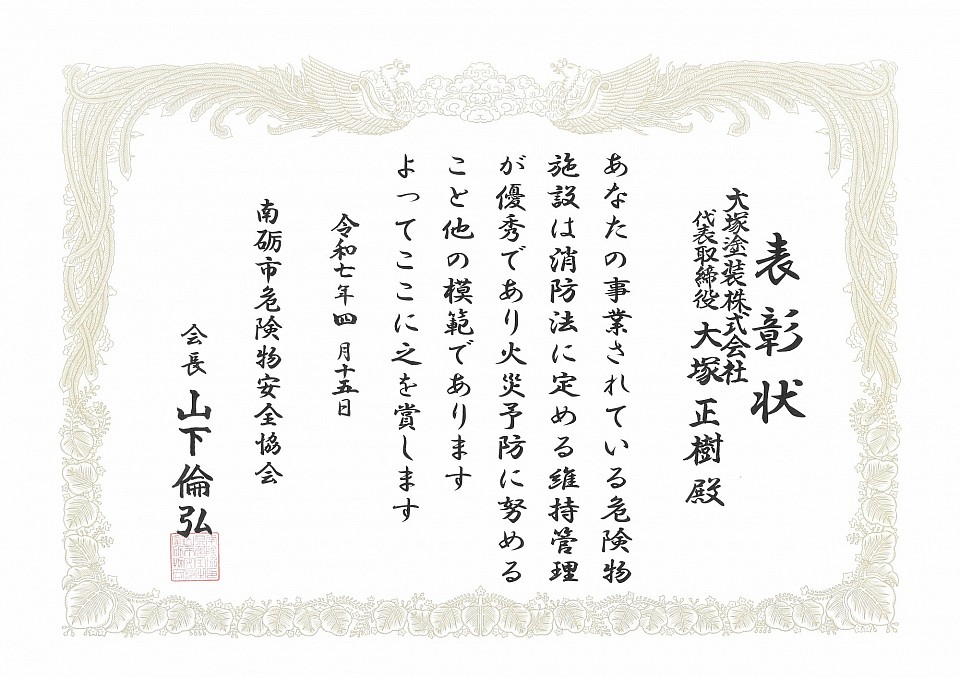 表彰状
大塚塗装株式会社
代表取締役 大塚 正樹 殿
あなたの事業されている危険物
施設は消防法に定める維持管理
が優秀であり火災予防に努める
こと他の模範であります
よってここに之を賞します
令和七年四月十五日
南砺市危険物安全協会
会長 山下倫弘